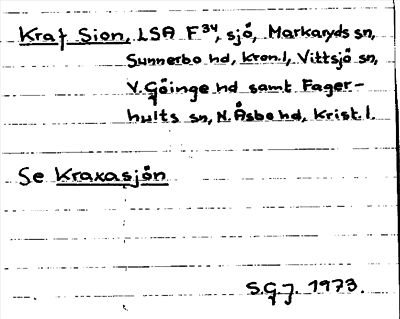 Kraf Sion, LSA F³⁴, sjö, Markaryds sn,
Sunnerbo hd, Kron.l, Vittsjö sn,
V. Göinge hd samt Fager-
hults sn, N. Åsbo hd, Krist. l.
Se Kraxasjön
S.G.J. 1973.